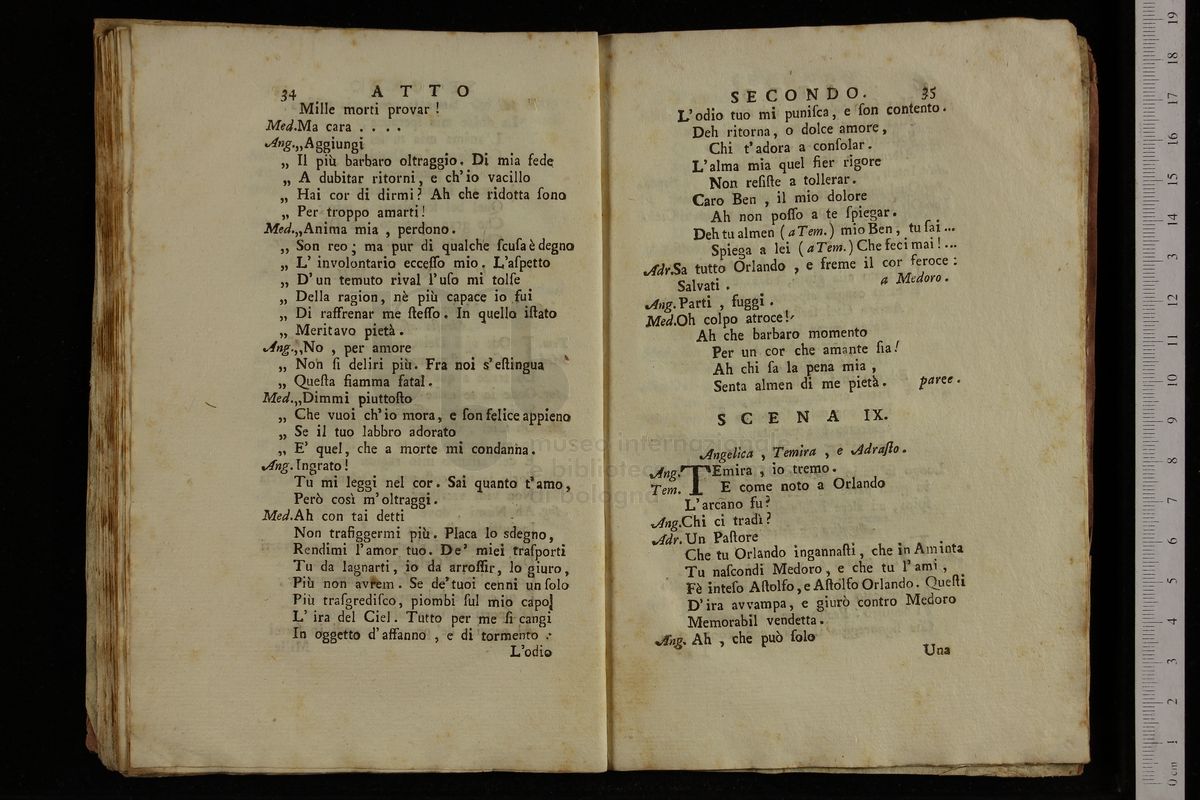 34 ATTO
Mille morti provar !
Med.Ma cara . . . .
Ang.„Aggiungi
„ Il più barbaro oltraggio. Di mia fede
„ A dubitar ritorni, e ch'io vacillo
„ Hai cor di dirmi? Ah che ridotta ſono
„ Per troppo amarti!
Med.„Anima mia , perdono.
„ Son reo; ma pur di qualche ſcuſa è degno
„ L' involontario ecceſſo mio. L'aſpetto
„ D'un temuto rival l'uſo mi tolſe
„ Della ragion, nè più capace io fui
„ Di raffrenar me ſteſſo. In quello iſtato
„ Meritavo pietà.
Ang.„No , per amore
„ Non ſi deliri più. Fra noi s'eſtingua
„ Queſta fiamma fatal.
Med.„Dimmi piuttoſto
„ Che vuoi ch'io mora, e ſon felice appieno
„ Se il tuo labbro adorato
„ E' quel, che a morte mi condanna.
Ang. Ingrato!
Tu mi leggi nel cor. Sai quanto t'amo,
Però così m'oltraggi.
Med.Ah con tai detti
Non trafiggermi più. Placa lo sdegno,
Rendimi l'amor tuo. De' miei traſporti
Tu da lagnarti, io da arroſſir, lo giuro,
Più non avrem. Se de' tuoi cenni un ſolo
Più traſgrediſco, piombi ſul mio capo
L' ira del Ciel. Tutto per me ſi cangi
In oggetto d'affanno , e di tormento :
L'odio
SECONDO. 35
L'odio tuo mi puniſca, e ſon contento.
Deh ritorna, o dolce amore,
Chi t'adora a conſolar.
L'alma mia quel fier rigore
Non reſiſte a tollerar.
Caro Ben , il mio dolore
Ah non poſſo a te ſpiegar.
Deh tu almen (a Tem.) mio Ben, tu ſai...
Spiega a lei (a Tem.) Che feci mai!...
Adr.Sa tutto Orlando , e freme il cor feroce :
Salvati . a Medoro.
Ang. Parti , fuggi .
Med.Oh colpo atroce!
Ah che barbaro momento
Per un cor che amante ſia!
Ah chi ſa la pena mia ,
Senta almen di me pietà. paree.
SCENA IX.
Angelica , Temira , e Adraſto.
Ang. TEmira , io tremo.
Tem. E come noto a Orlando
L'arcano fu?
Ang.Chi ci tradì?
Adr. Un Paſtore
Che tu Orlando ingannaſti, che in Aminta
Tu naſcondi Medoro, e che tu l'ami,
Fè inteſo Aſtolfo, e Aſtolfo Orlando. Queſti
D'ira avvampa, e giurò contro Medoro
Memorabil vendetta.
Ang. Ah , che può ſolo
Una
museo internazionale
e biblioteca
di bologna
0 cm 1 2 3 4 5 6 7 8 9 10 11 12 13 14 15 16 17 18 19